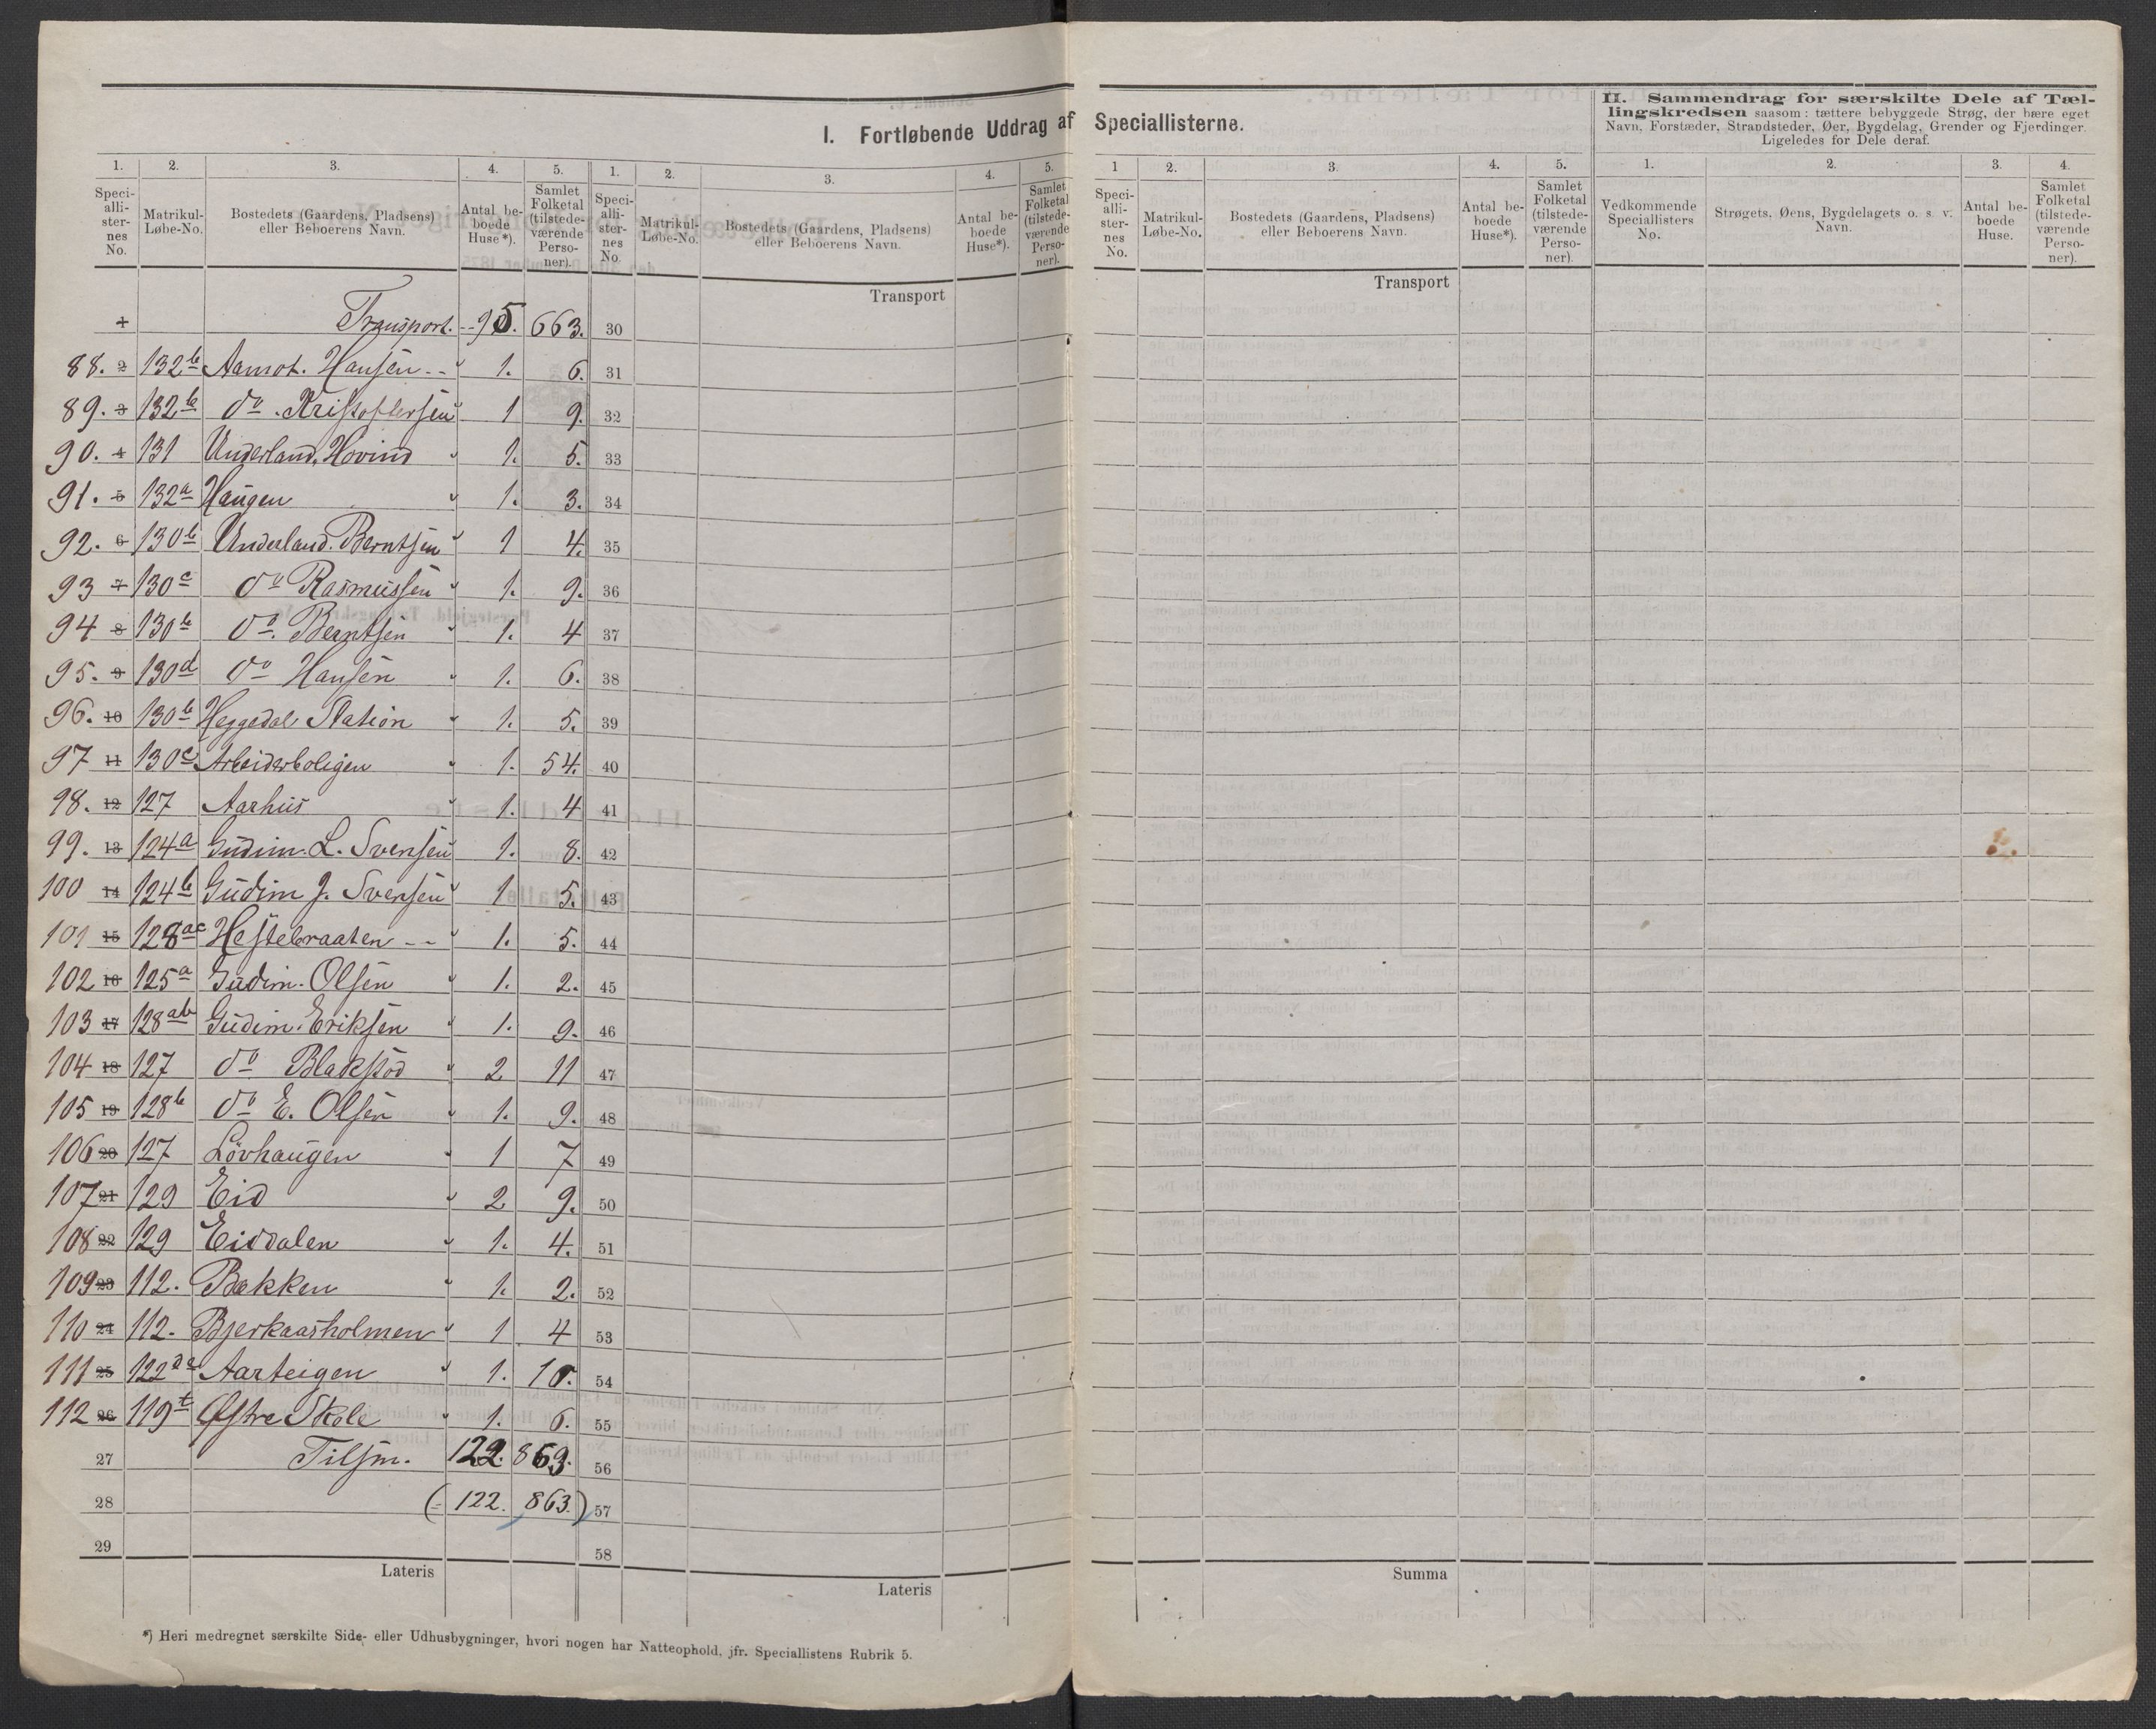 I. Fortløbende Uddrag af Speciallisterne.
II. Sammendrag for særskilte Dele af Tæl-
lingskredsen saasom: tættere bebyggede Strøg, der bære eget
Navn, Forstæder, Strandsteder, Øer, Bygdelag, Grender og Fjerdinger.
Ligeledes for Dele deraf.
1. 2. 3. 4. 5. 1. 2. 3. 4. 5.
Speci-alli-ster-nes No. Matrikul-Løbe-No. Bostedets (Gaardens, Pladsens) eller Beboerens Navn. Antal be-boede Huse*). Samlet Folketal (tilstede-værende Perso-ner).
Speci-alli-ster-nes No. Matrikul-Løbe-No. Bostedets (Gaardens, Pladsens) eller Beboerens Navn. Antal be-boede Huse*). Samlet Folketal (tilstede-værende Perso-ner).
Transport
Transport. 95. 663. 30
88. 2 132b Aamot. Hansen 1. 6. 31
89. 3 132b do. Kristoffersen 1 9. 32
90. 4 131 Underland, Hovind 1. 5. 33
91. 5 132a Haugen 1. 3. 34
92. 6 130b Underland. Berntsen 1 4. 35
93 7 130c do Rasmussen 1. 9. 36
94 8 130b do. Berntsen 1. 4 37
95. 9 130d do Hansen 1. 6. 38
96. 10 130b Heggedal Station 1. 5. 39
97 11 130c Arbeiderboligen 1. 54. 40
98. 12 127 Aarhus 1. 4 41
99. 13 124a Gudim. L. Svensen 1. 8. 42
100 14 124b Gudim J. Svensen 1 5. 43
101 15 128ac Hestebraaten 1. 5. 44
102 16 125a Gudim. Olsen 1. 2. 45
103 17 128ab Gudim. Eriksen 1. 9. 46
104 18 127 do Blakstad 2 11 47
105 19 128b do E. Olsen 1. 9. 48
106 20 127 Lövhaugen 1 7 49
107 21 129 Eid 2 9. 50
108 22 129 Eiddalen 1. 4. 51
109 23 112. Bækken 1. 2. 52
110 24 112. Bjerkaasholmen 1 4 53
111 25 122de Aarteigen 1. 10. 54
112 26 119t Østre Skole 1. 6. 55
27 Tilsm. 122. 863. 56
28 (= 122. 863.) 57
29 58
Lateris
Lateris
*) Heri medregnet særskilte Side- eller Udhusbygninger, hvori nogen har Natteophold, jfr. Speciallistens Rubrik 5.
1 2. 3. 4. 5. 1. 2. 3. 4.
Speci-alli-ster-nes No. Matrikul-Løbe-No. Bostedets (Gaardens, Pladsens) eller Beboerens Navn. Antal be-boede Huse*). Samlet Folketal (tilstede-værende Perso-ner).
Vedkommende Speciallisters No. Strøgets, Øens, Bygdelagets o. s. v. Navn. Antal be-boede Huse. Samlet Folketal (tilstede-værende Perso-ner).
Transport
Summa